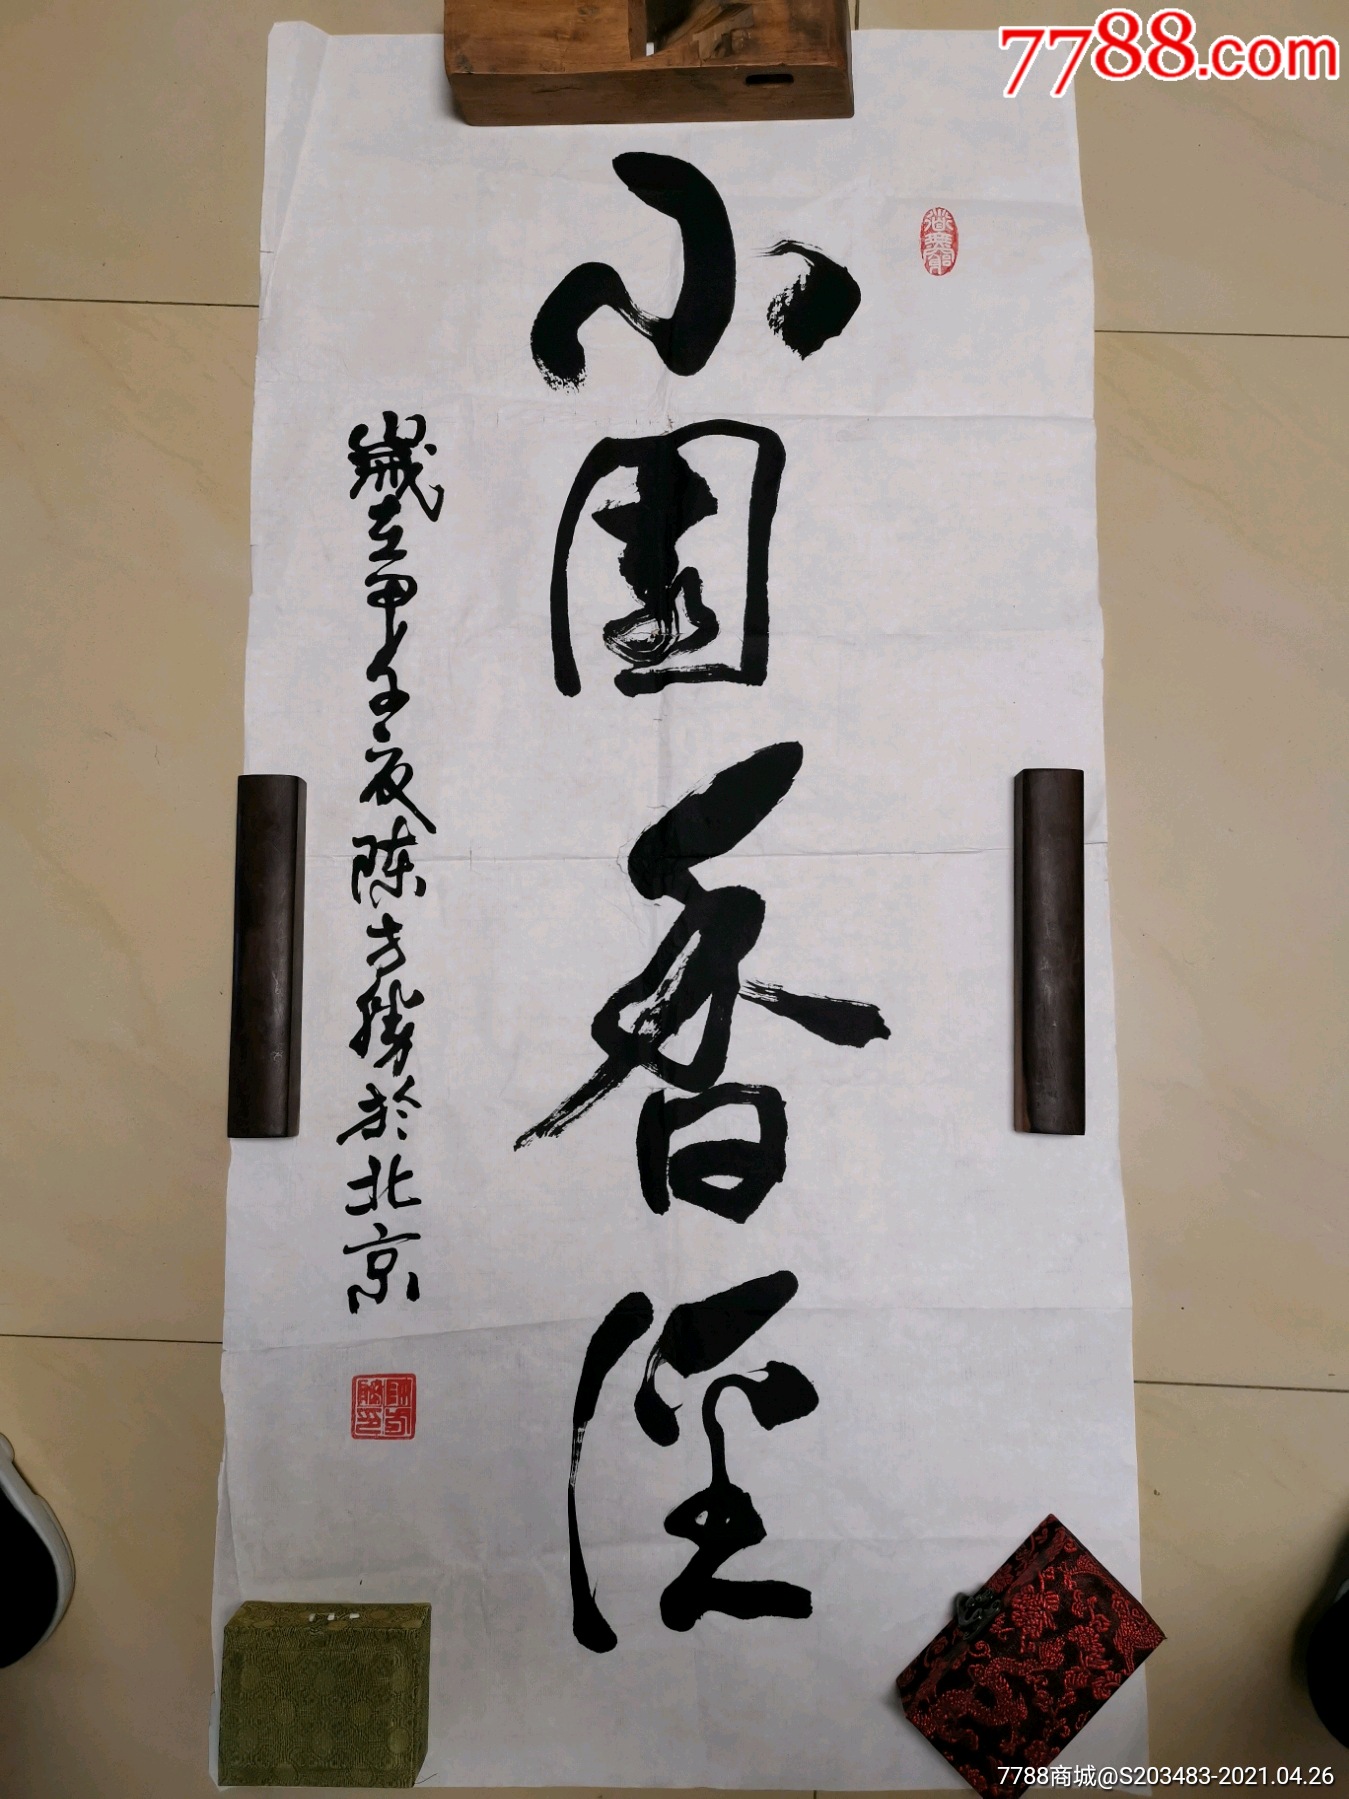 7788.com
小園香徑
歲在甲子夏陈方勝於北京
7788商城@S203483-2021.04.26